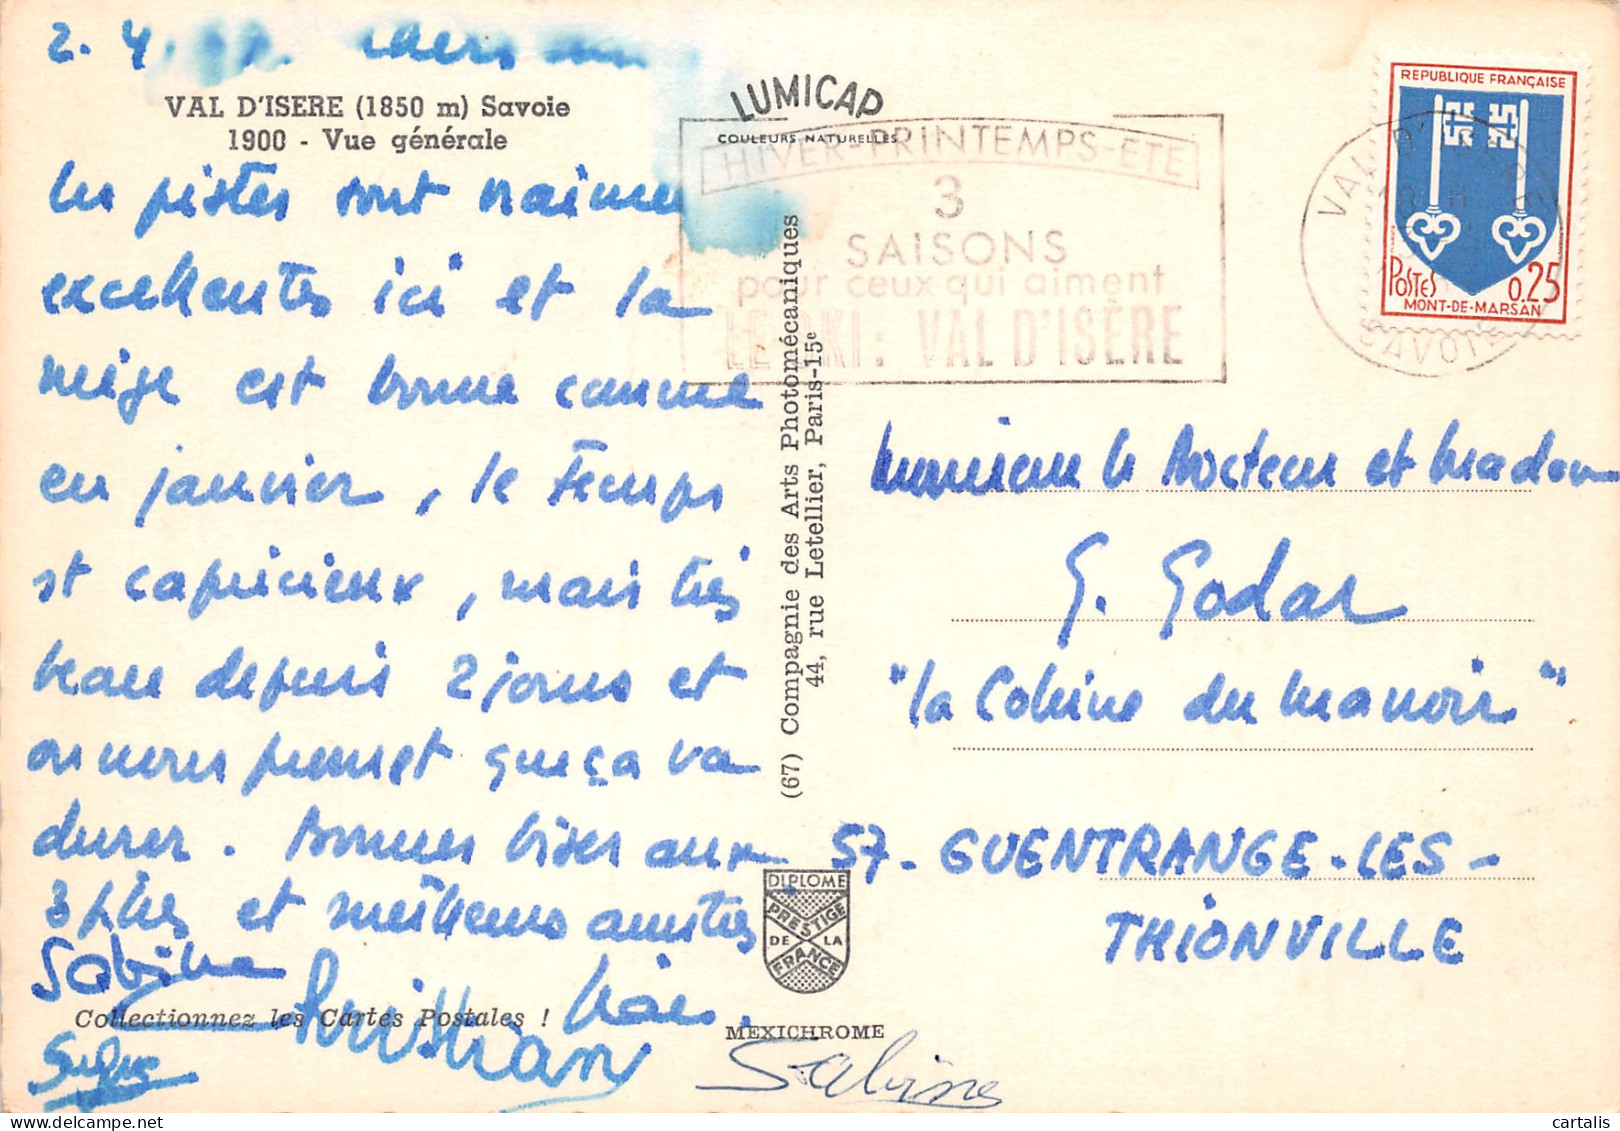 2. 4. Chers amis
VAL D'ISERE (1850 m) Savoie
1900 - Vue générale
les pistes sont vraiment
excellentes ici et la
neige est bonne comme
en janvier, le temps
est capricieux, mais très
beau depuis 2 jours et
on nous promet que ça va
durer. Bonnes bises aux
3 filles et meilleures amitiés
Sabine
Christian
Collectionnez les Cartes Postales !
Sabine
LUMICAP
COULEURS NATURELLES
HIVER-PRINTEMPS-ETE
3
SAISONS
pour ceux qui aiment
LE SKI : VAL D'ISÈRE
(67) Compagnie des Arts Photomécaniques
44, rue Letellier, Paris-15e
DIPLOME
PRESTIGE
DE LA
FRANCE
MEXICHROME
REPUBLIQUE FRANÇAISE
POSTES 0.25
MONT-DE-MARSAN
VAL D'ISERE
SAVOIE
Monsieur le Docteur et Madame
G. Godar
"la Colline du Manoir"
57- GUENTRANGE-LES-
THIONVILLE
cartalis